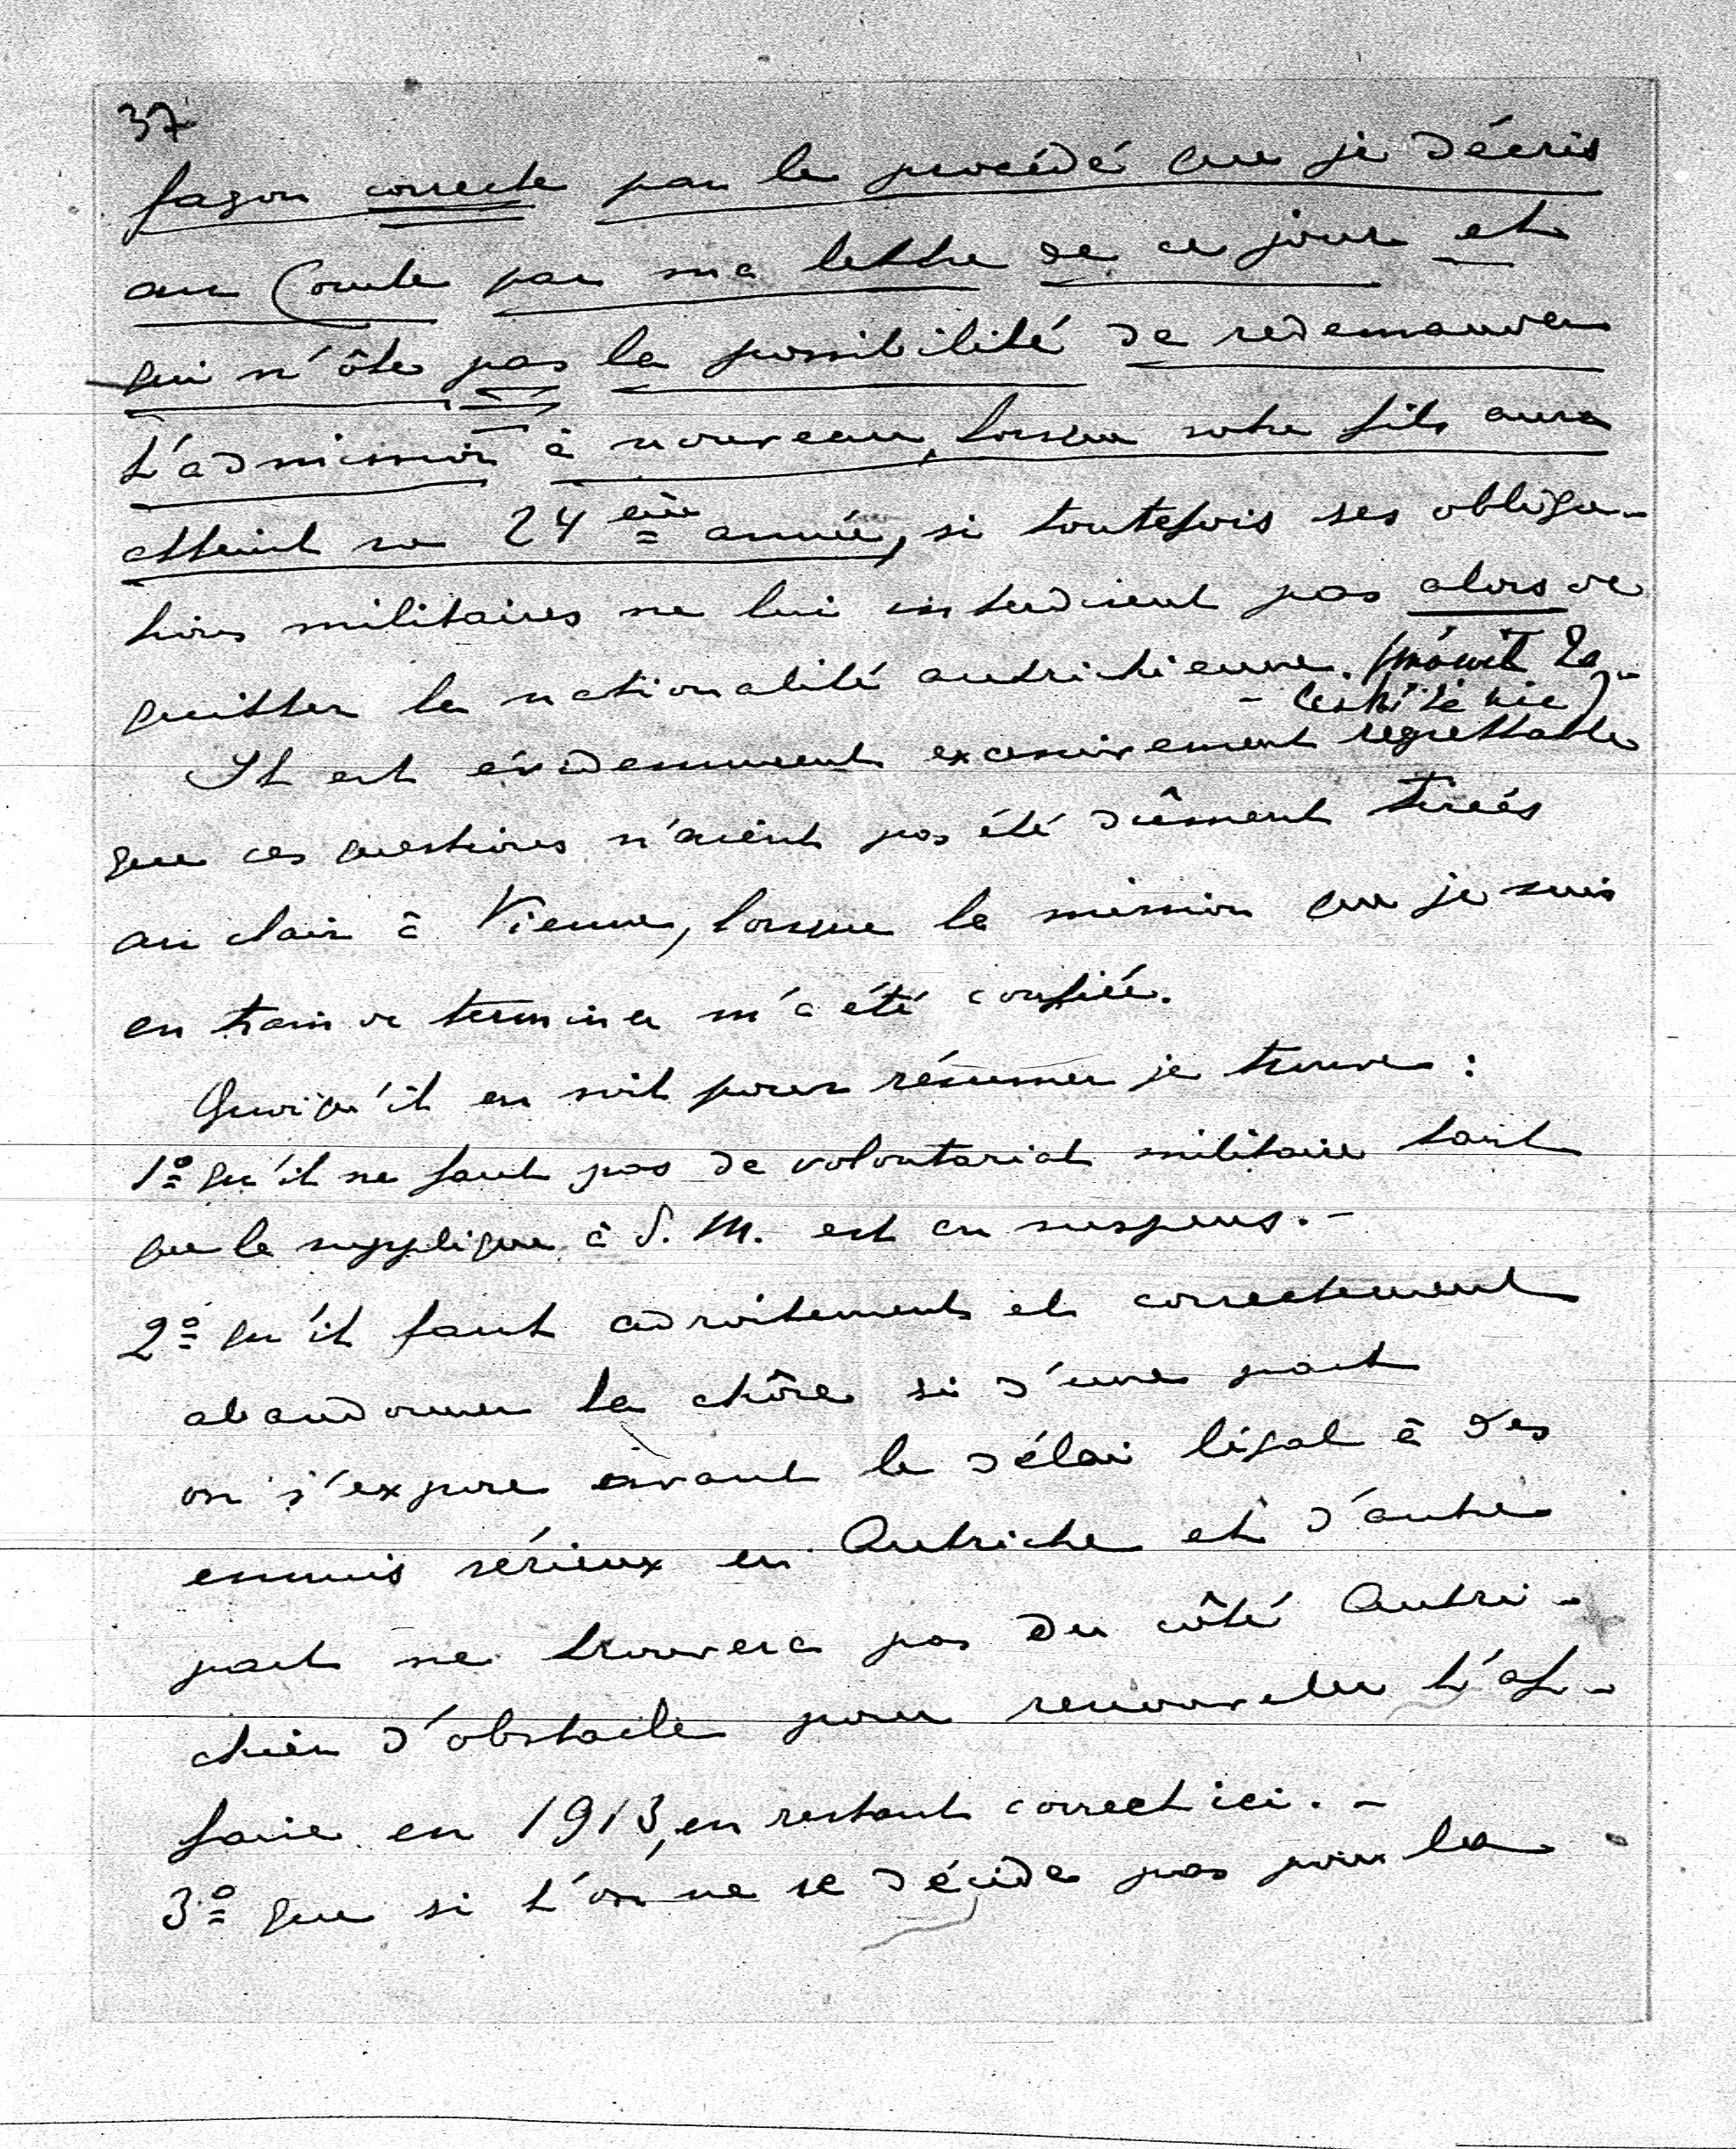 37
façon correcte par le procédé que je décris
au Comte par ma lettre de ce jour et
qui n'ôte pas la possibilité de redemander
l'admission à nouveau, lorsque votre fils aura
atteint sa 24 ème année, si toutefois ses obliga-
tions militaires ne lui interdisent pas alors de
quitter la nationalité autrichienne.
Il est évidemment excessivement regrettable
que ces questions n'aient pas été dûment tirées
au clair à Vienne, lorsque la mission que je suis
en train de terminer m'a été confiée.
Quoiqu'il en soit pour résumer je trouve :
1º qu'il ne faut pas de volontariat militaire tant
que la supplique à S. M. est en suspens. -
2º qu'il faut adroitement et correctement
abandonner la chôse si d'une part
on s'expose avant le délai légal à des
ennuis sérieux en Autriche et d'autre
part ne trouvera pas du côté Autri-
chien d'obstacle pour renouveler l'af-
faire en 1913, en restant correct ici. -
3º que si l'on ne se décide pas pour la